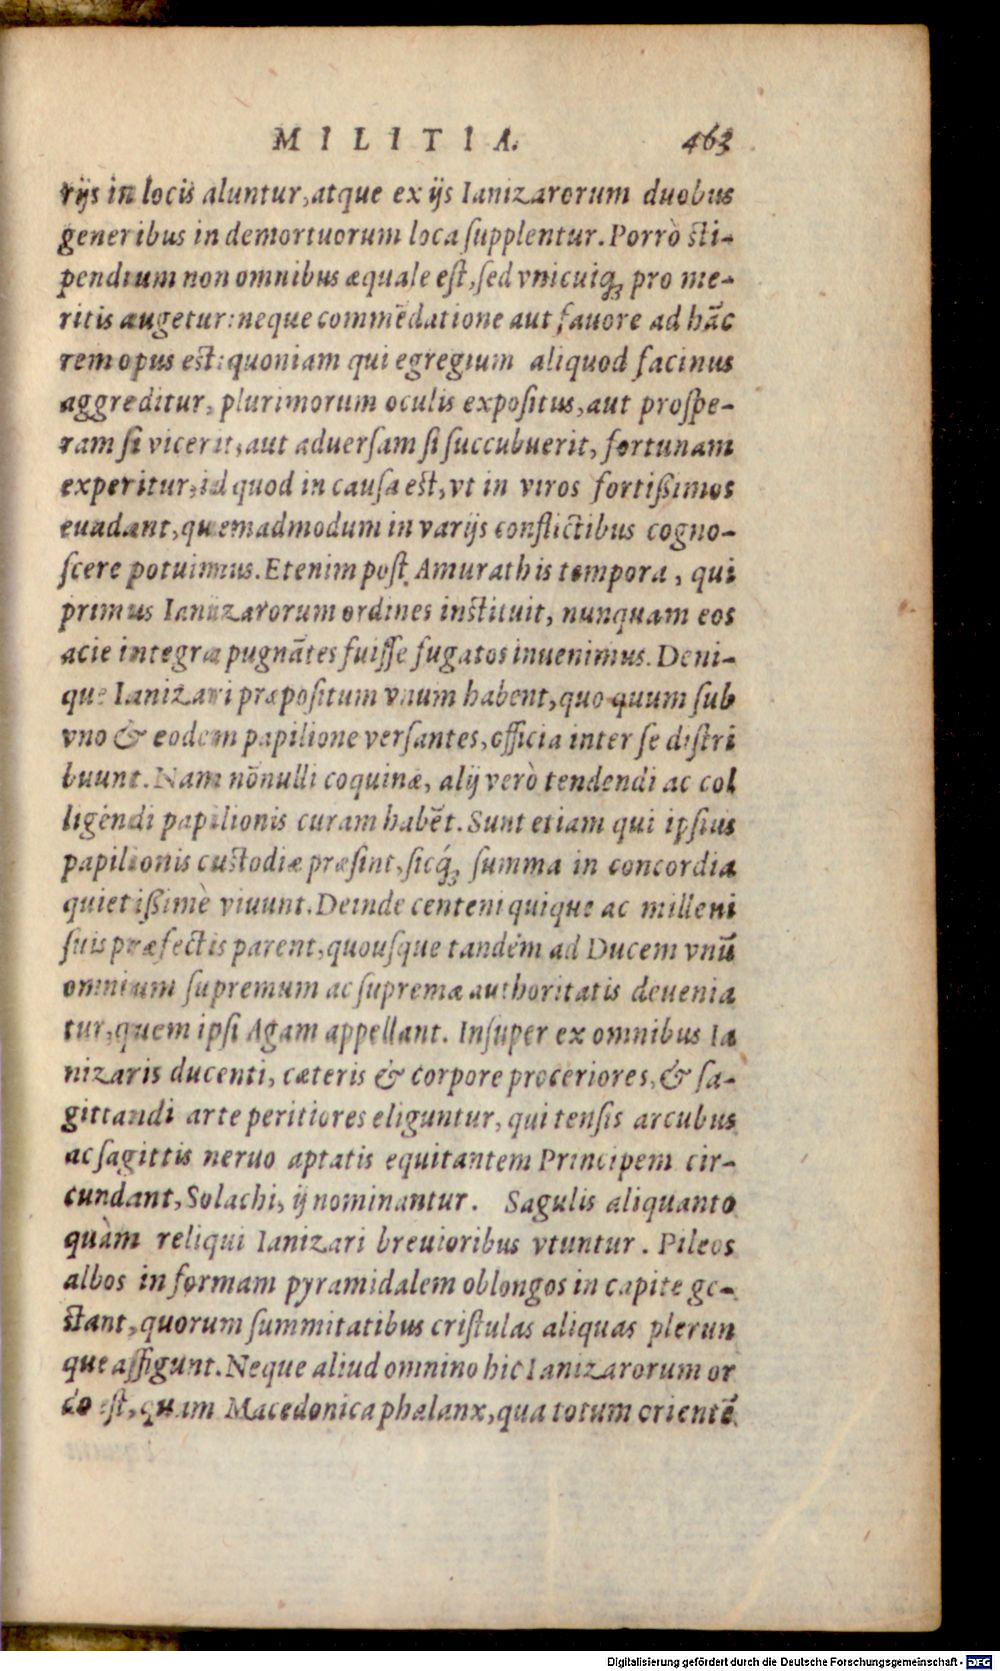 MILITIA. 463
rijs in locis aluntur, atque ex ijs Ianizarorum duobus
generibus in demortuorum loca supplentur. Porrò sti-
pendium non omnibus æquale est, sed vnicuiq; pro me-
ritis augetur: neque commẽdatione aut fauore ad hãc
rem opus est: quoniam qui egregium aliquod facinus
aggreditur, plurimorum oculis expositus, aut prospe-
ram si vicerit, aut aduersam si succubuerit, fortunam
experitur, id quod in causa est, vt in viros fortißimos
euadant, quemadmodum in varijs conflictibus cogno-
scere potuimus. Etenim post Amurathis tempora, qui
primus Ianizarorum ordines instituit, nunquam eos
acie integra pugnãtes fuisse fugatos inuenimus. Deni-
que Ianizari præpositum vnum habent, quo quum sub
vno & eodem papilione versantes, officia inter se distri
buunt. Nam nõnulli coquinæ, alij verò tendendi ac col
ligendi papilionis curam habẽt. Sunt etiam qui ipsius
papilionis custodiæ præsint, sicq́; summa in concordia
quietißimè viuunt. Deinde centeni quique ac milleni
suis præfectis parent, quousque tandem ad Ducem vnũ
omnium supremum ac supremæ authoritatis deuenia
tur, quem ipsi Agam appellant. Insuper ex omnibus Ia
nizaris ducenti, cæteris & corpore proceriores, & sa-
gittandi arte peritiores eliguntur, qui tensis arcubus
ac sagittis neruo aptatis equitantem Principem cir-
cundant, Solachi, ij nominantur. Sagulis aliquanto
quàm reliqui Ianizari breuioribus vtuntur. Pileos
albos in formam pyramidalem oblongos in capite ge-
stant, quorum summitatibus cristulas aliquas plerun
que affigunt. Neque aliud omnino hic Ianizarorum or
do est, quam Macedonica phalanx, qua totum orientẽ
Digitalisierung gefördert durch die Deutsche Forschungsgemeinschaft - DFG